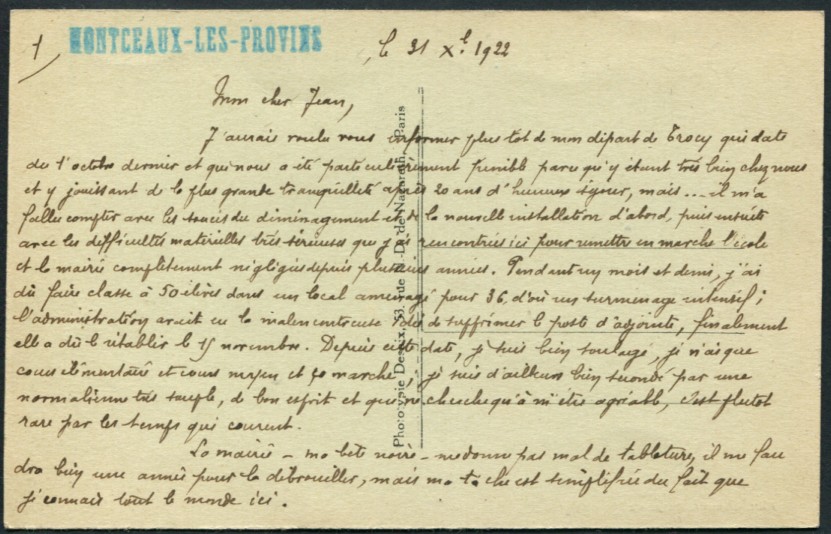 1/ MONTCEAUX-LES-PROVINS
le 31 Xe. 1922
Mon cher Jean,
J'aurais voulu vous informer plus tôt de mon départ de Trocy qui date
du 1er octobre dernier et qui nous a été particulièrement pénible parce qu'y étant très bien chez nous
et y jouissant de la plus grande tranquillité après 20 ans d'heureux séjour, mais... il m'a
fallu compter avec les soucis du déménagement et de la nouvelle installation d'abord, puis ensuite
avec les difficultés matérielles très sérieuses que j'ai rencontrées ici pour remettre en marche l'école
et la mairie complètement négligées depuis plusieurs années. Pendant un mois et demi, j'ai
dû faire classe à 50 élèves dans un local aménagé pour 36, d'où un surmenage intensif ;
l'administration avait eu la malencontreuse idée de supprimer le poste d'adjointe, finalement
elle a dû le rétablir le 15 novembre. Depuis cette date, je suis bien soulagé, je n'ai que
cours élémentaire et cours moyen et ça marche, je suis d'ailleurs bien secondé par une
normalienne très souple, de bon esprit et qui ne cherche qu'à m'être agréable, c'est plutôt
rare par les temps qui courent.
La mairie - ma bête noire - me donne pas mal de tablature, il me fau
dra bien une année pour la débrouiller, mais ma tâche est simplifiée du fait que
je connais tout le monde ici.
Phototypie Desaix, 53, rue N.-D. de Nazareth, Paris